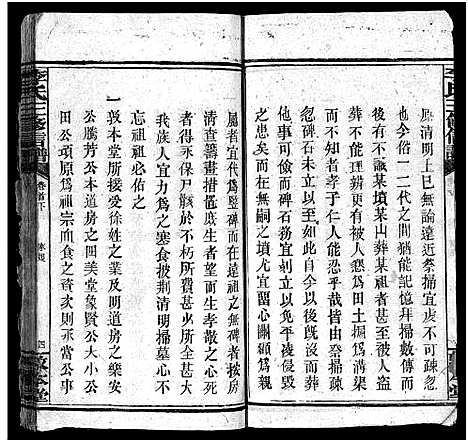 歷清明上巳無論遠近祭掃宜虔不可疎忽
也今俗一二代之間猶能記憶拜掃數傳而
後有不識某墳某山葬某祖者甚至被人盜
葬不能理辨更有被人懇爲田土掘爲溝圳
等弊不一而知者孝子仁人能忍乎皆由祭掃疎
忽碑石未立以至此自今以後既沒而葬
他事可儉而碑石務宜刻立以圖永久無
者亦在無嗣之墳地尤宜留心關
屬者宜代爲豎碑而在遠祖之無碑者按房
清查籌畫措置庶生者安而生孝敬之心死
者永保尸骸於不朽所費甚少所全甚大
我族人宜力爲之寒食披荆清明掃墓心不
忘祖祖必佑之
一敦本堂所掃徐姓之業及明道房之樂安
公騰芳公本道房之四美堂象賢公大小公
田公項原爲祖宗而食之資次則永當公事
李氏三修信譜
卷首下
家規
四
敦本堂